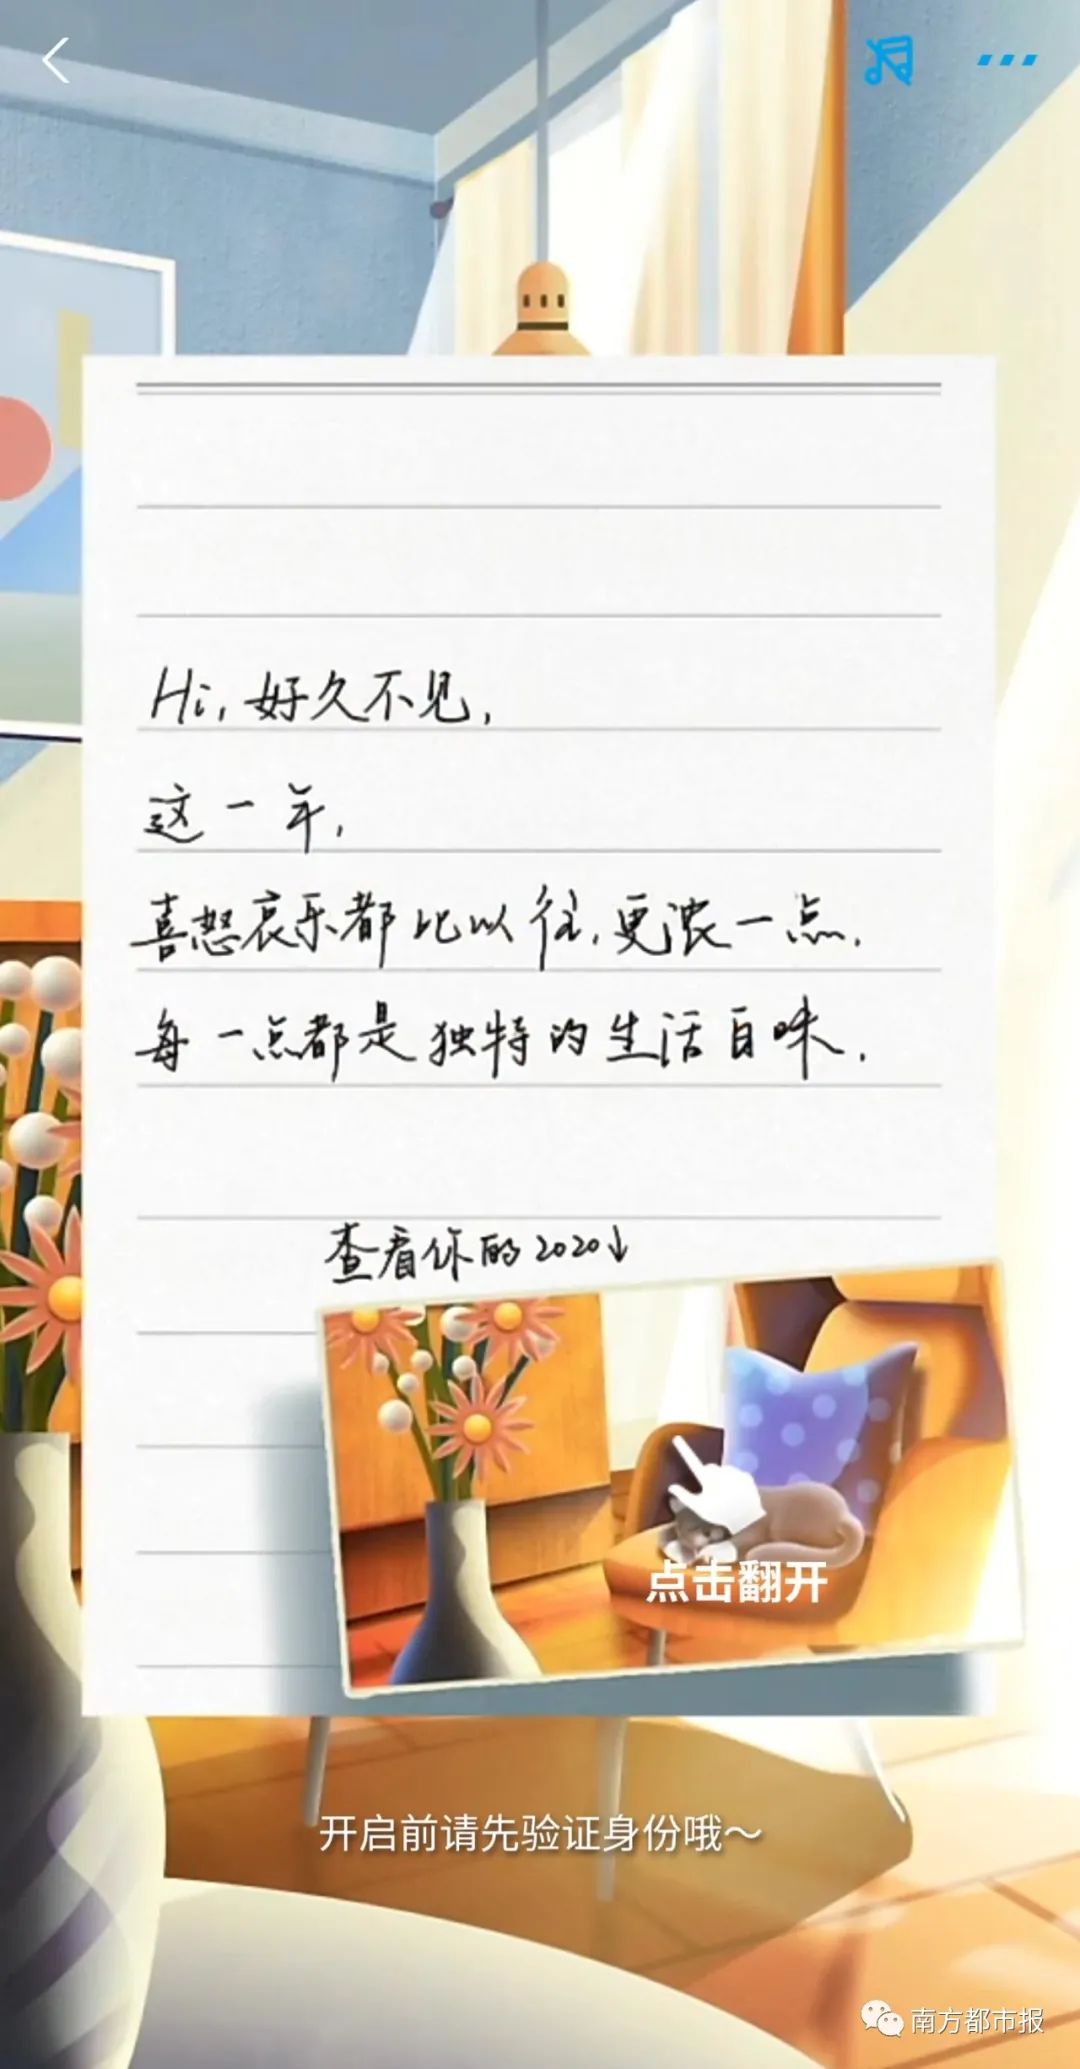 Hi, 好久不见,
这一年,
喜怒哀乐都比以往,更浓一点.
每一点都是独特的生活自味.
查看你的2020↓
点击翻开
开启前请先验证身份哦～
南方都市报